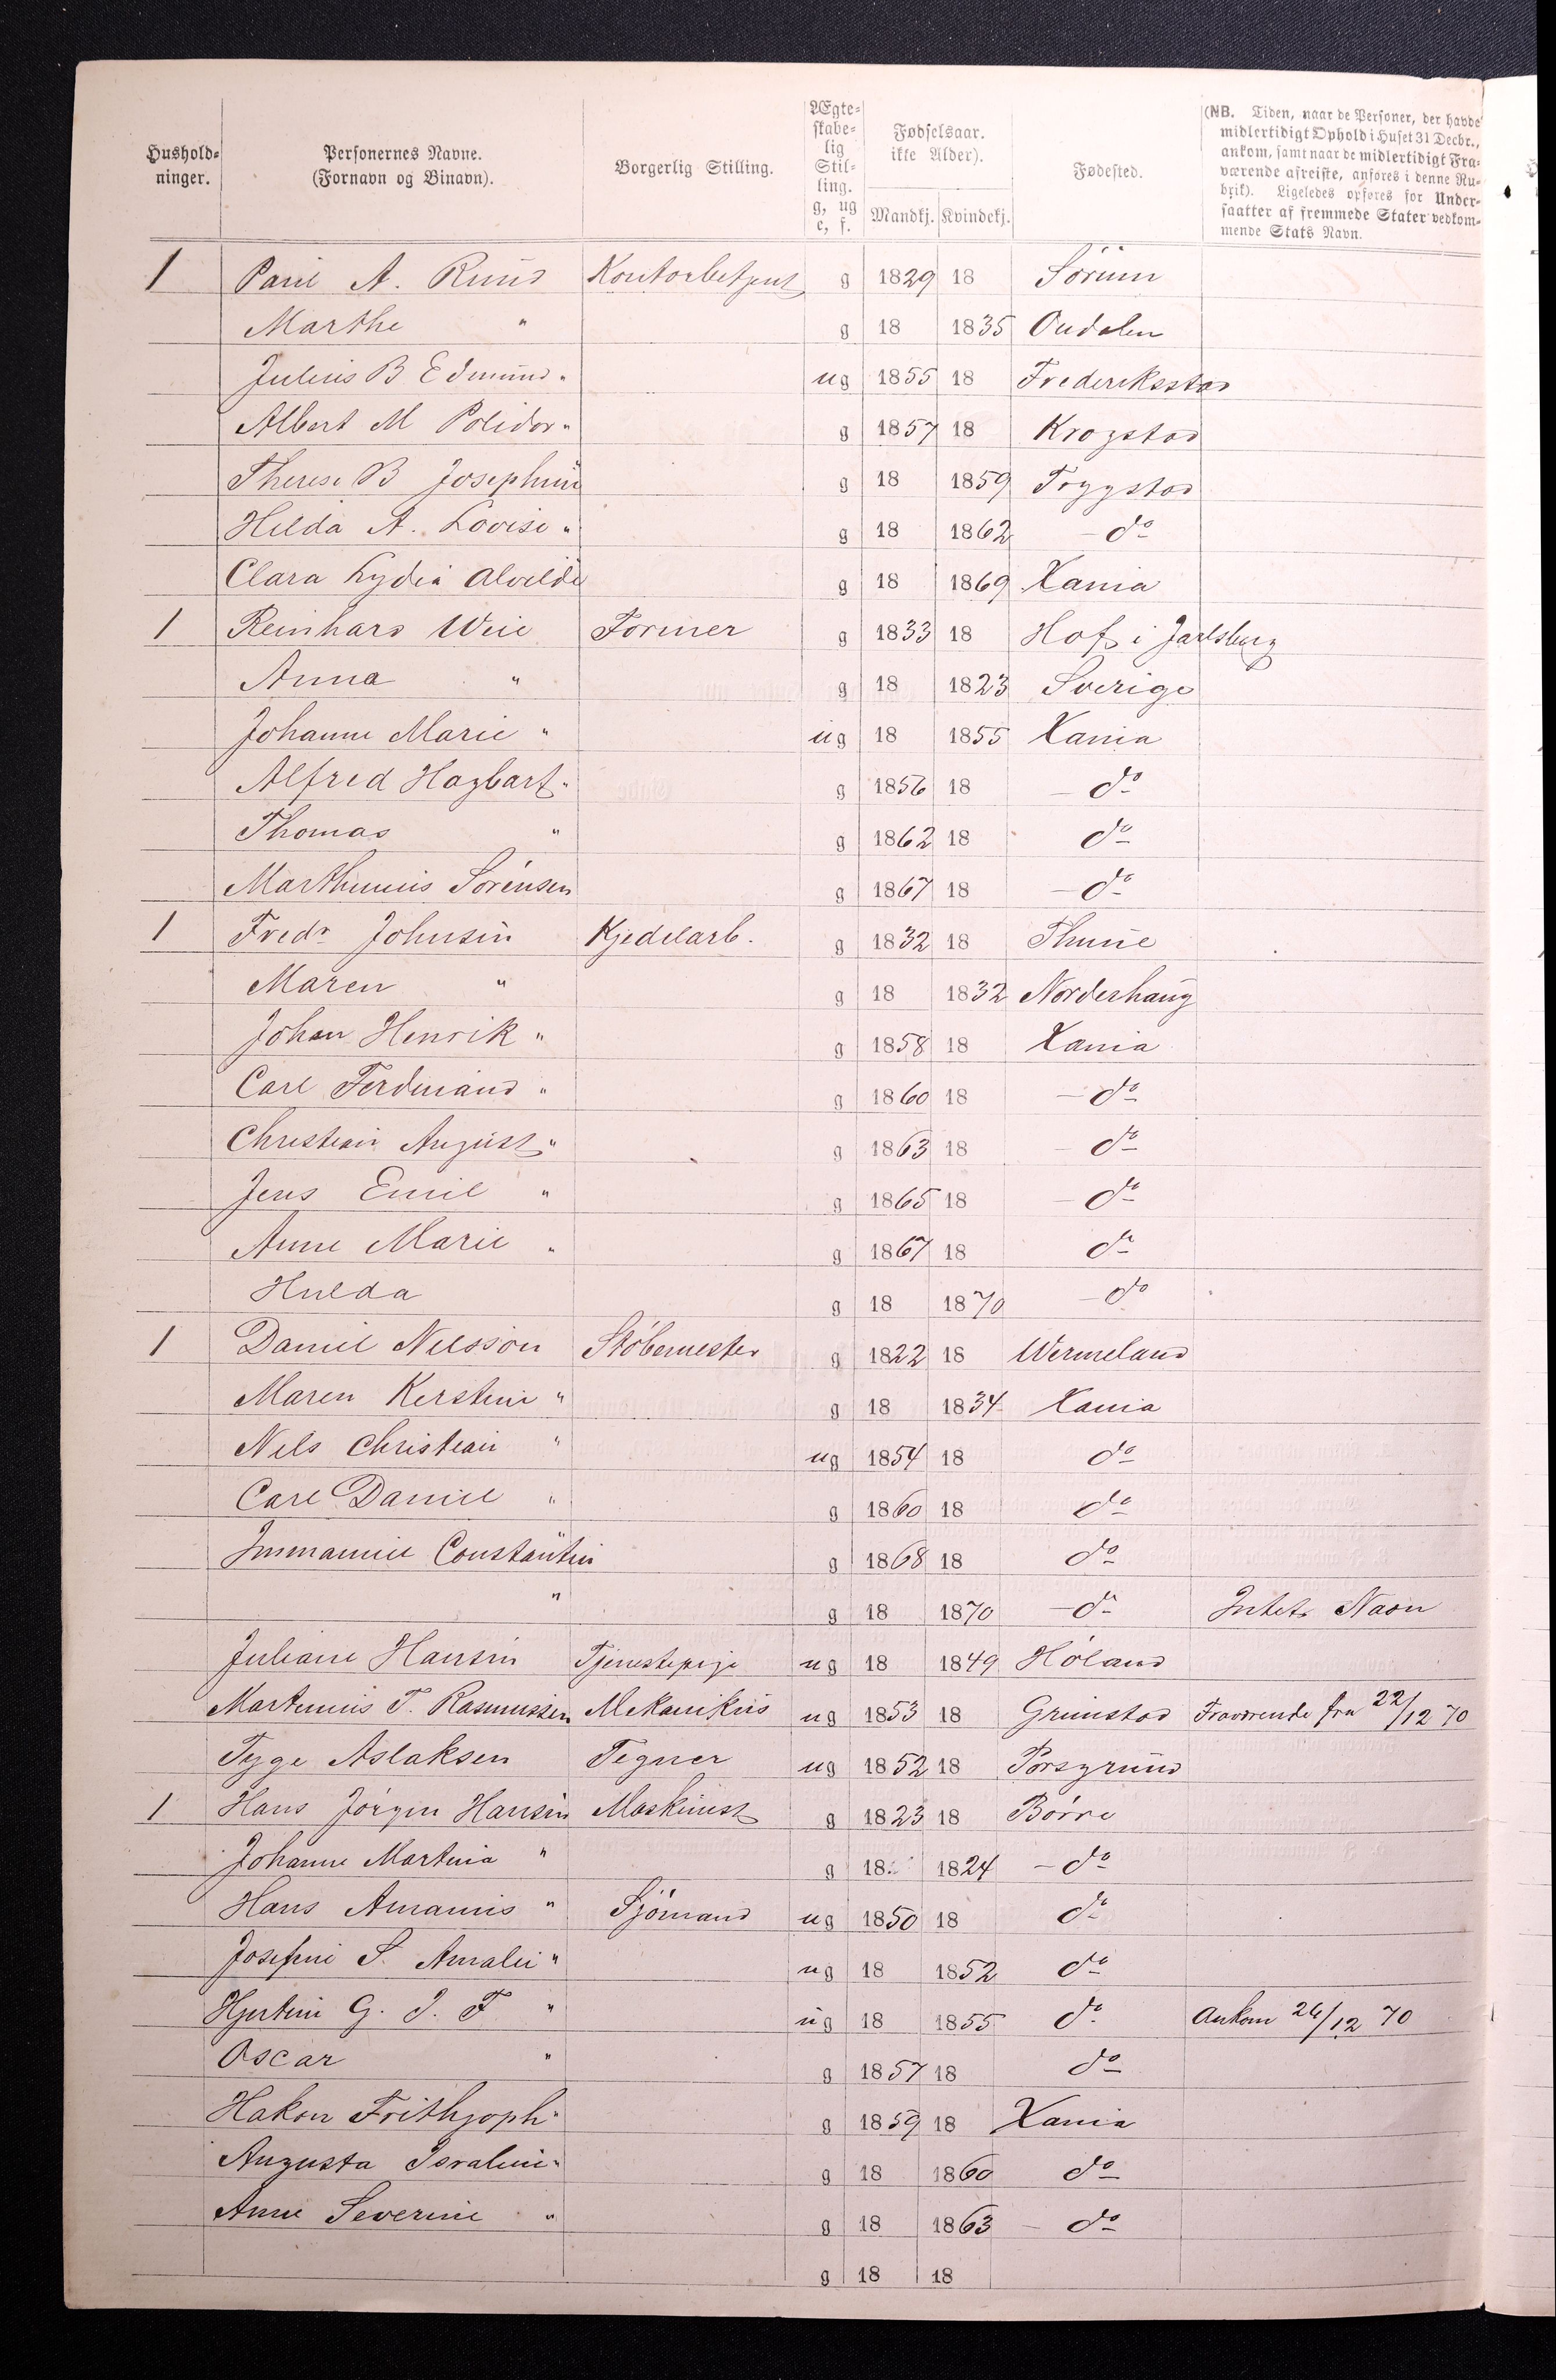 Hushold-
ninger.
Personernes Navne.
(Fornavn og Binavn).
Borgerlig Stilling.
Ægte-
skabe-
lig
Stil-
ling.
g, ug
e, f.
Fødselsaar.
ikke Alder).
Mandkj. Kvindekj.
Fødested.
(NB. Tiden, naar de Personer, der havde
midlertidigt Ophold i Huset 31 Decbr.,
ankom, samt naar de midlertidigt Fra-
værende afreiste, anføres i denne Ru-
brik). Ligeledes opføres for Under-
saatter af fremmede Stater vedkom-
mende Stats Navn.
1 Paul A. Ruud Kontorbetjent g 1829 18 Sörum
Marthe " g 18 1835 Oudalen
Julius B Edmund " ug 1855 18 Frederiksstad
Albert M Polidor " g 1857 18 Krogstad
Therese B Josephine g 18 1859 Tryggstad
Hilda A. Lovise " g 18 1862 do
Clara Lydia Alvilde g 18 1869 Xania
1 Reinhard Weie Former g 1833 18 Hof i Jarlsberg
Anna " g 18 1823 Sverige
Johanne Marie " ug 18 1855 Xania
Alfred Hagbart " g 1856 18 do
Thomas " g 1862 18 do
Marthinius Sörensen g 1867 18 do
1 Fredr Johnsen Kjedelarb. g 1832 18 Thune
Maren " g 18 1832 Norderhaug
Johan Henrik " g 1858 18 Xania
Carl Ferdinand " g 1860 18 do
Christian August " g 1863 18 do
Jens Emil " g 1865 18 do
Anne Marie " g 1867 18 do
Hulda g 18 1870 do
1 Daniel Nilsson Stöbemester g 1822 18 Wermeland
Maren Kerstine " g 18 1834 Xania
Nils Christian " ug 1854 18 do
Carl Daniel " g 1860 18 do
Immanuel Constantin g 1868 18 do
" g 18 1870 do Intet Navn
Juliane Hansen Tjenestepige ug 18 1849 Höland
Martinius T. Rasmussen Mekanikus ug 1853 18 Grimstad Fraværende fra 22/12 70
Tyge Aslaksen Tegner ug 1852 18 Porsgrund
1 Hans Jörgen Hansen Maskinist g 1823 18 Börre
Johanne Martinia " g 18 1824 do
Hans Amannis " Sjömand ug 1850 18 do
Josefine S. Amalie " ug 18 1852 do
Hjertine G. J. F " ug 18 1855 do Ankom 26/12 70
Oscar " g 1857 18 do
Hakon Frithjoph " g 1859 18 Xania
Augusta Israline " g 18 1860 do
Anne Severine " g 18 1863 do
g 18 18